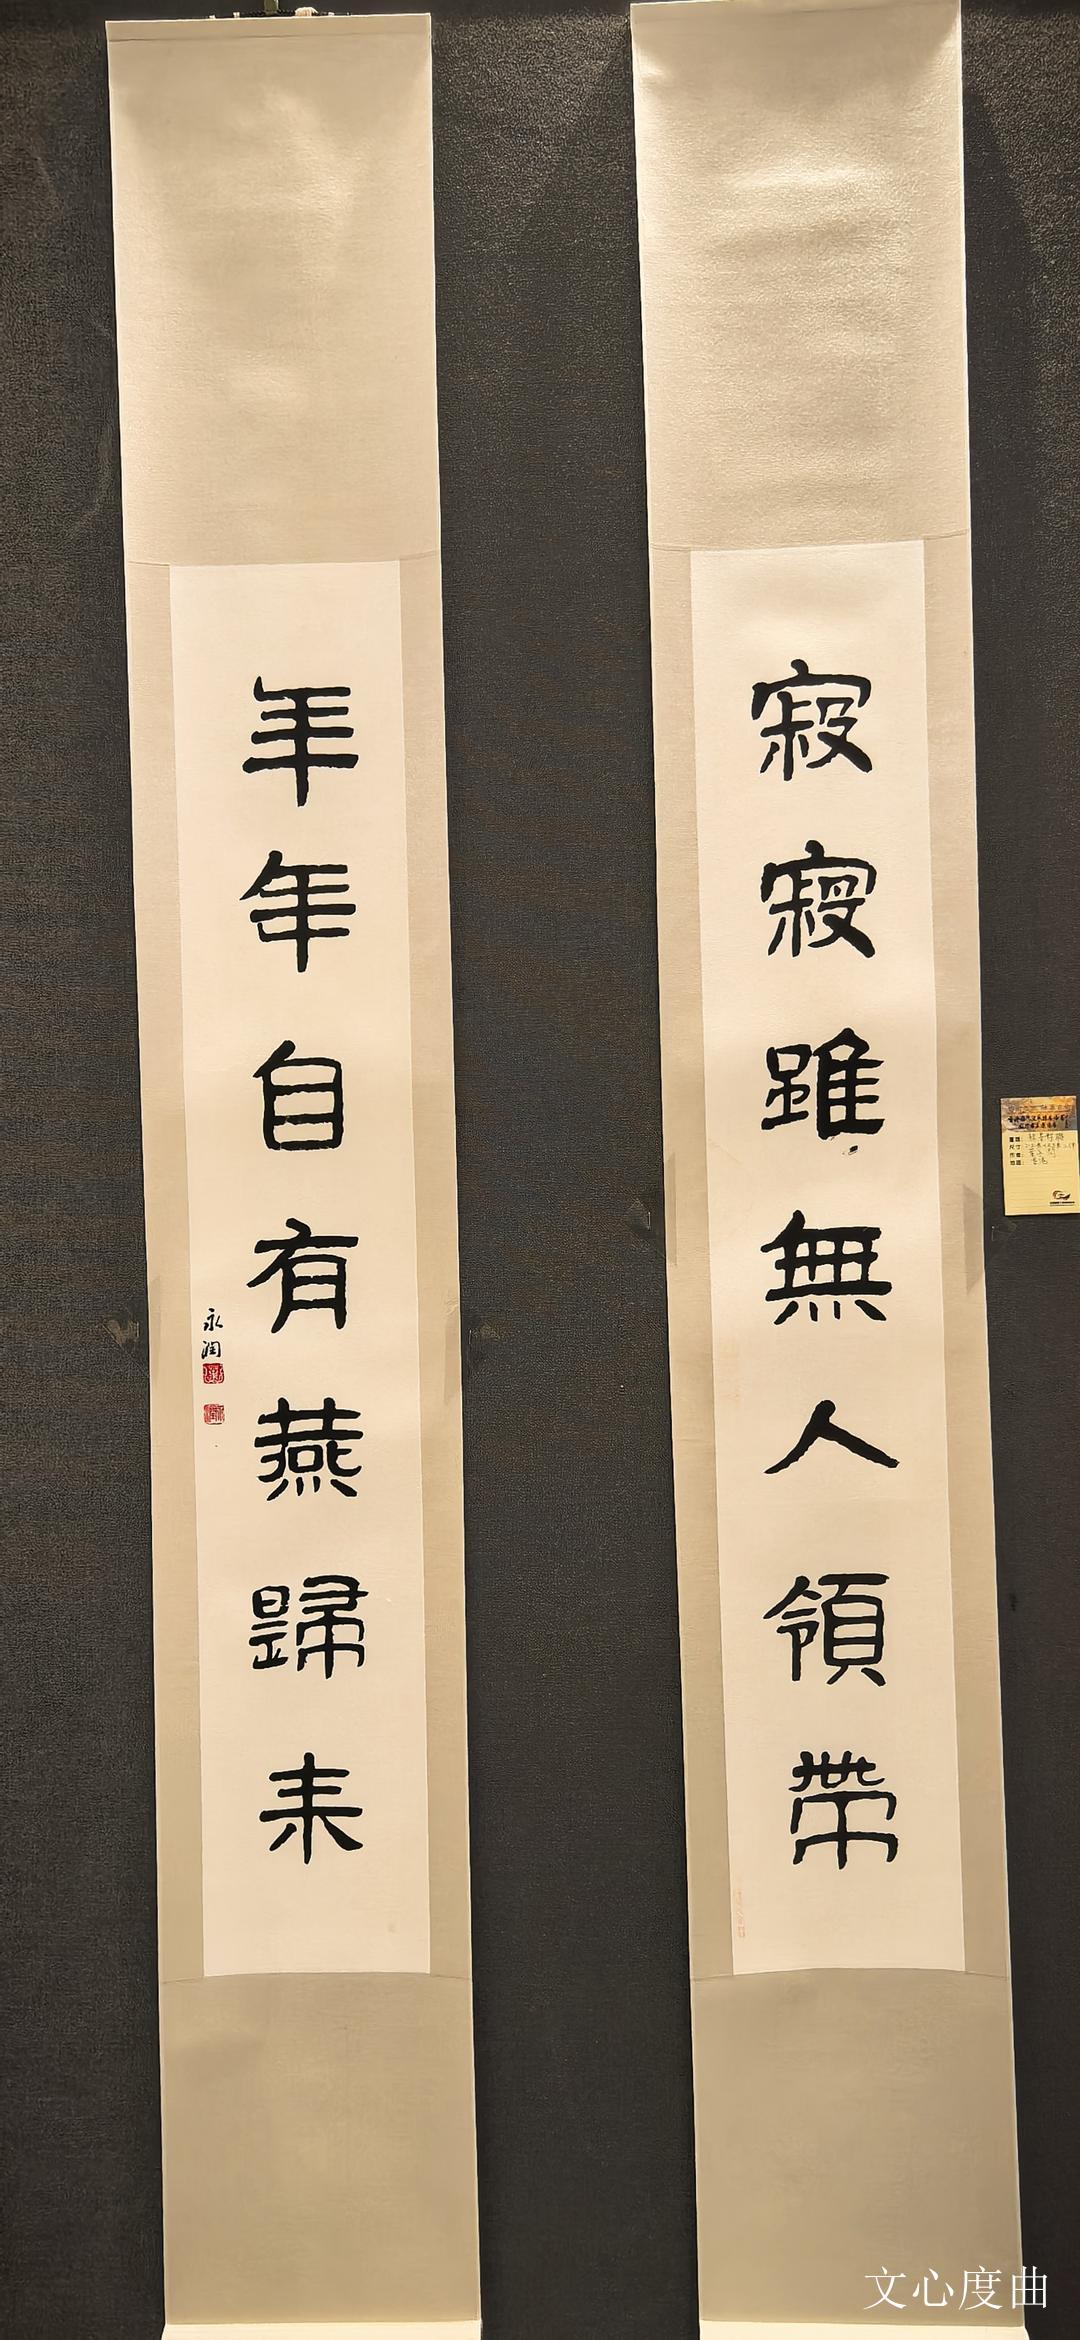 寂寂雖無人領帶
年年自有燕歸来
永潤
文心度曲